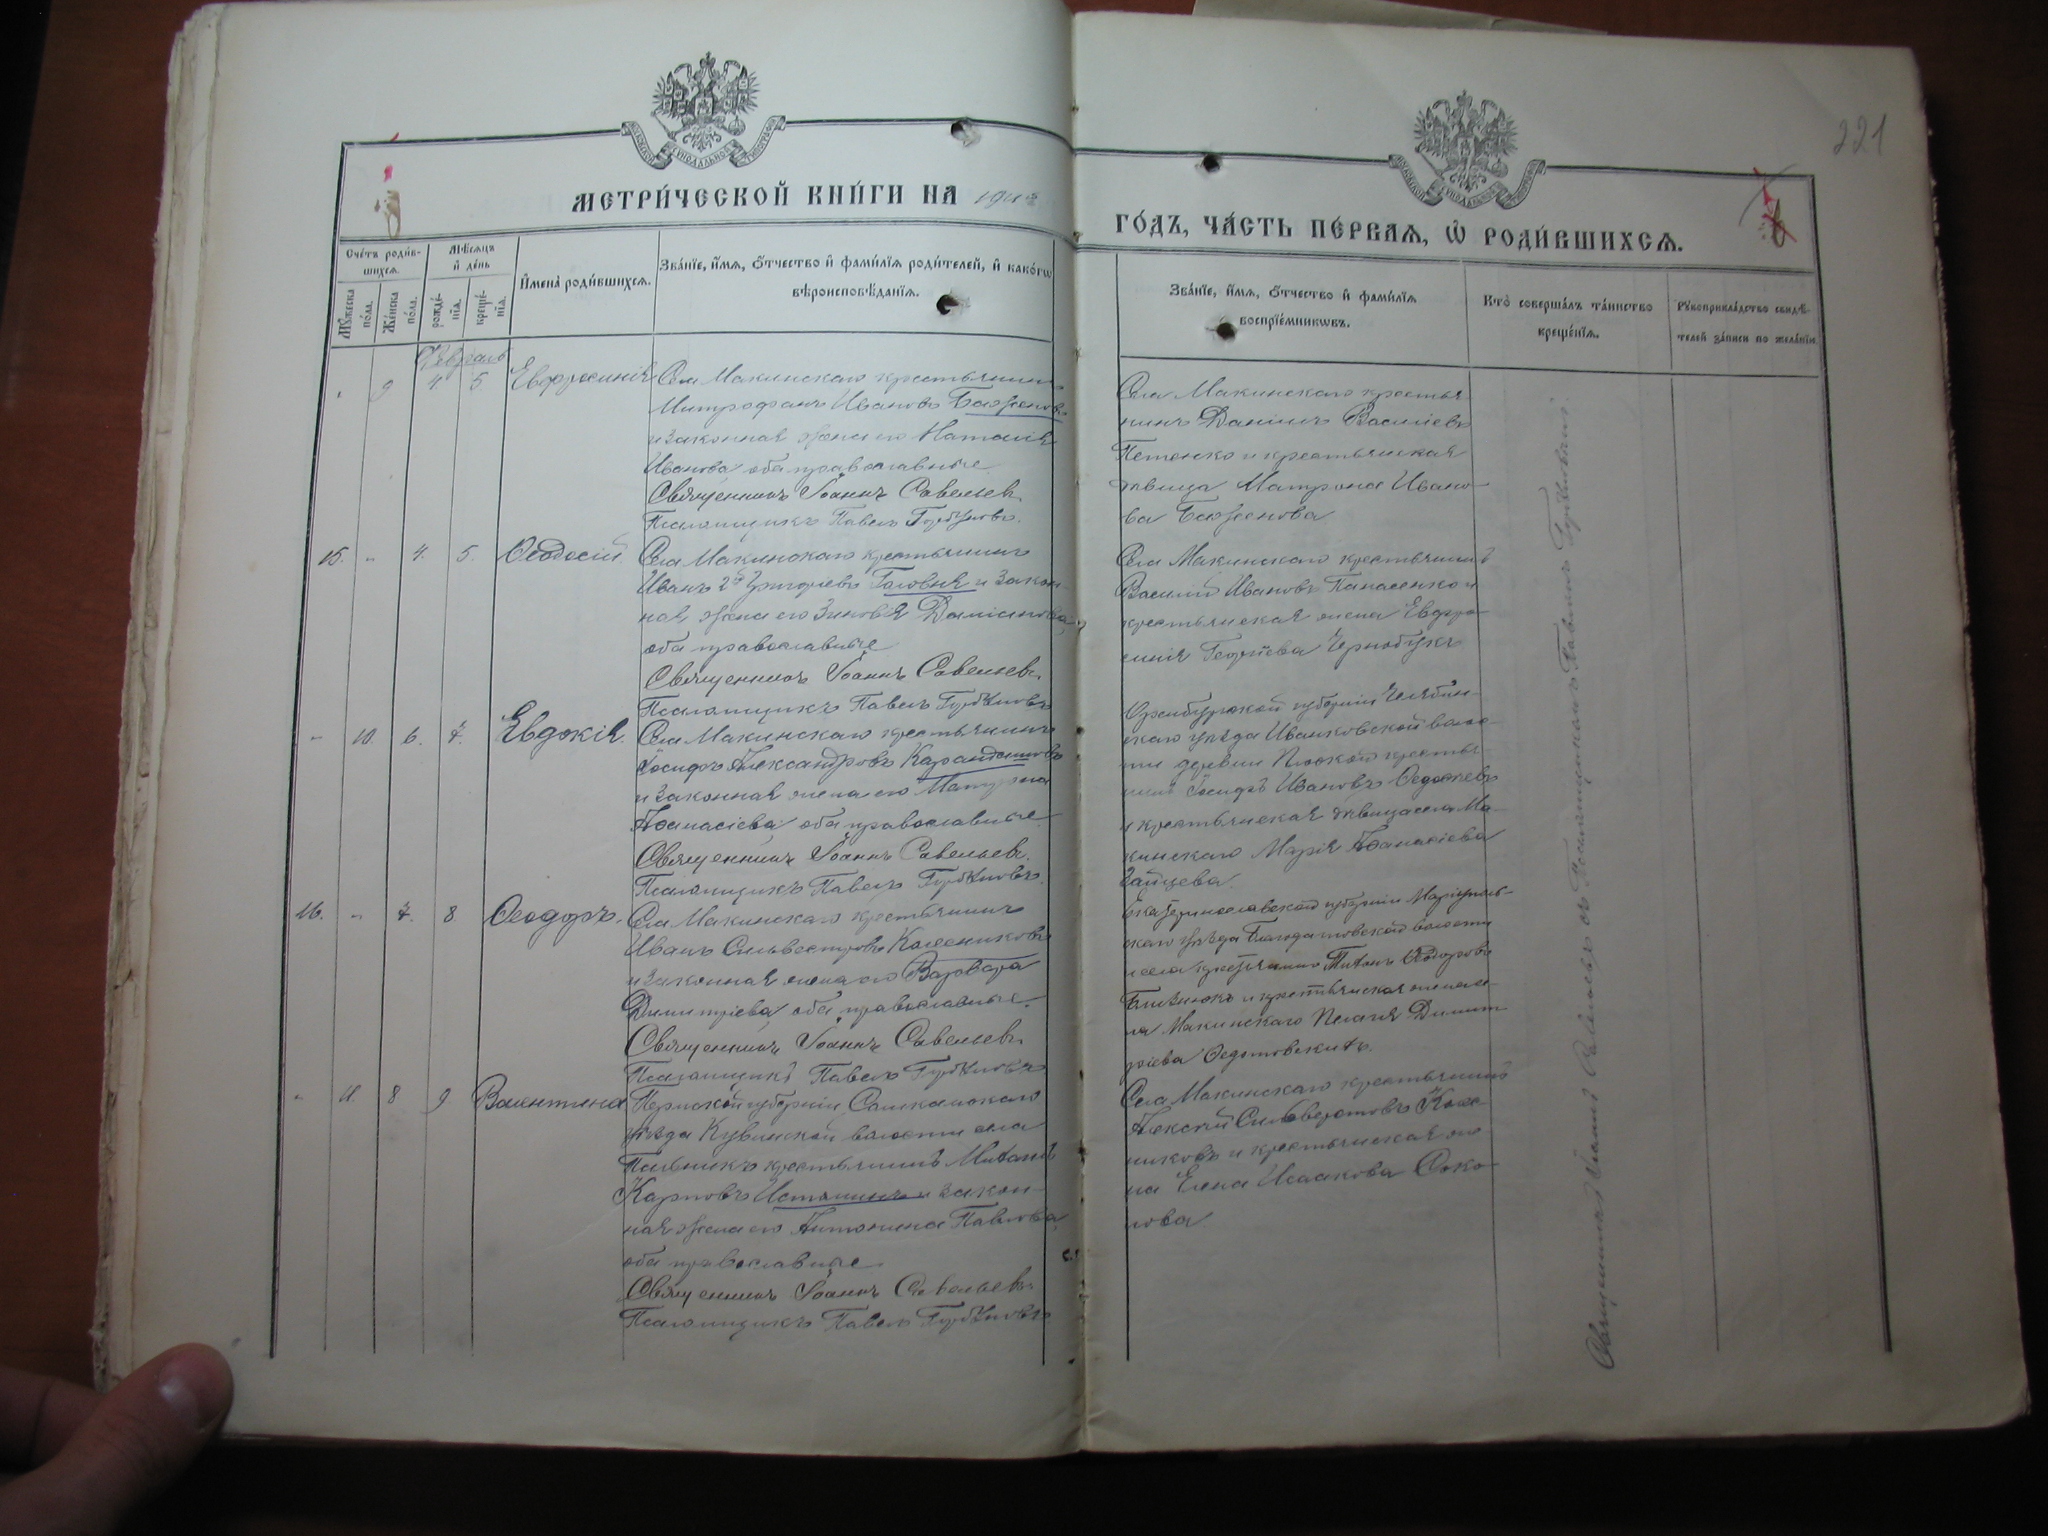 221
МЕТРИ́ЧЕСКОЙ КНИ́ГИ НА
ГО́ДЪ, ЧА́СТЬ ПЕ́РВАЯ, Ѡ РОДИ́ВШИХСЯ.
Сче́тъ роди́в-
шихся.
Му́жеска по́ла.
Же́нска по́ла.
Мѣ́сяцъ
и де́нь
рожде́-
нія.
креще́-
нія.
Имена̀ роди́вшихся.
Зва́нїе, и́мя, о́тчество и фами́лїя роди́телей, и како́гѡ
вѣроисповѣ́данїя.
Зва́нїе, и́мя, о́тчество и фами́лїя
воспрїе́мникѡвъ.
Кто̀ соверша́лъ та́инство
креще́нїя.
Рукоприкла́дство свидѣ́-
телей за́писи по жела́нїю.
Февраль
9 4 5. Евфросинія
Села Макинскаго крестьянинъ
Митрофанъ Ивановъ Баженовъ
и законная жена его Наталія
Иванова оба православные.
Священникъ Іоаннъ Савельевъ.
Псаломщикъ Павелъ Горбуновъ.
Села Макинскаго крестья
нинъ Даніилъ Васильевъ
Петенко и крестьянская
дѣвица Матрона Ивано-
ва Баженова
15. " 4. 5. Ѳеодосій
Села Макинскаго крестьянинъ
Иванъ 2й Григорьевъ Головня и закон-
ная жена его Зиновія Даміанова,
оба православные
Священникъ Іоаннъ Савельевъ.
Псаломщикъ Павелъ Горбуновъ
Села Макинскаго крестьянинъ
Василій Ивановъ Панасенко и
крестьянская жена Евфро-
синія Георгіева Чернобукъ
" 10. 6. 7. Евдокія.
Села Макинскаго крестьянинъ
Іосифъ Александровъ Карандашовъ
и законная жена его Матрона
Аѳанасіева оба православные
Священникъ Іоаннъ Савельевъ.
Псаломщикъ Павелъ Горбуновъ.
Оренбургской губерніи Челябин-
скаго уѣзда Иванковской волос-
ти деревни крестья
нинъ Іосифъ Ивановъ
и крестьянская дѣвица села Ма-
кинскаго Марія Аѳанасіева
Зайцева
16. " 7. 8 Ѳеодоръ.
Села Макинскаго крестьянинъ
Иванъ Сильвестровъ Колесниковъ
и законная жена его Варвара
Димитріева, оба православные.
Священникъ Іоаннъ Савельевъ.
Псаломщикъ Павелъ Горбуновъ
Екатеринославской губерніи Маріуполь-
скаго уѣзда волости
и села крестьянинъ Титъ Ѳеодоровъ
Близнюкъ и крестьянская жена се-
ла Макинскаго Пелагія Димит
ріева
" 11 8 9 Валентина
Пермской губерніи Соликамскаго
уѣзда Кувинской волости села
крестьянинъ
Карповъ Истоминъ и закон-
ная жена его Антонина Павлова,
оба православные.
Священникъ Іоаннъ Савельевъ.
Псаломщикъ Павелъ Горбуновъ
Села Макинскаго крестьянинъ
Алексій Сильвестровъ Колес-
никовъ и крестьянская же-
на Елена Исаакова Соко-
лова
Священникъ Іоаннъ Савельевъ съ Псаломщикомъ Павломъ Горбуновымъ.